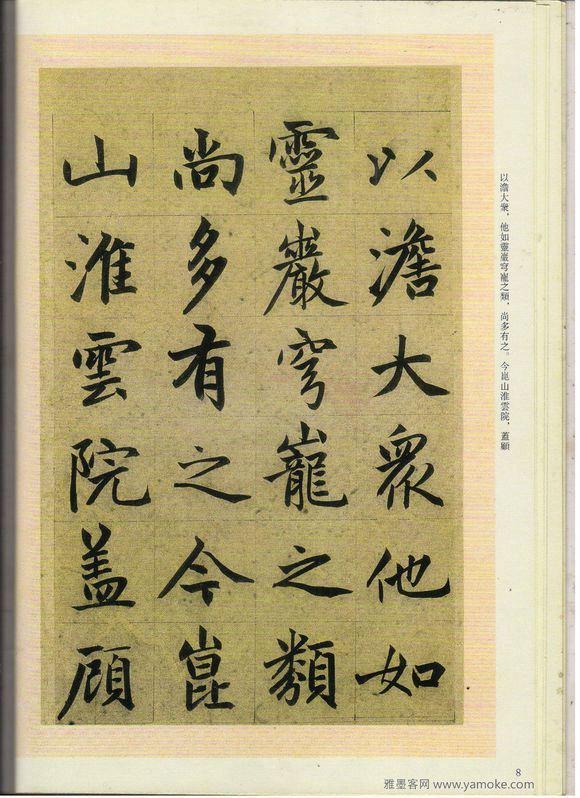 以澹大衆他如
靈巖穹巃之類
尚多有之今崑
山淮雲院盖顧
以澹大衆，他如靈巖穹巃之類，尚多有之。今崑山淮雲院，蓋顧
8
雅墨客网 www.yamoke.com